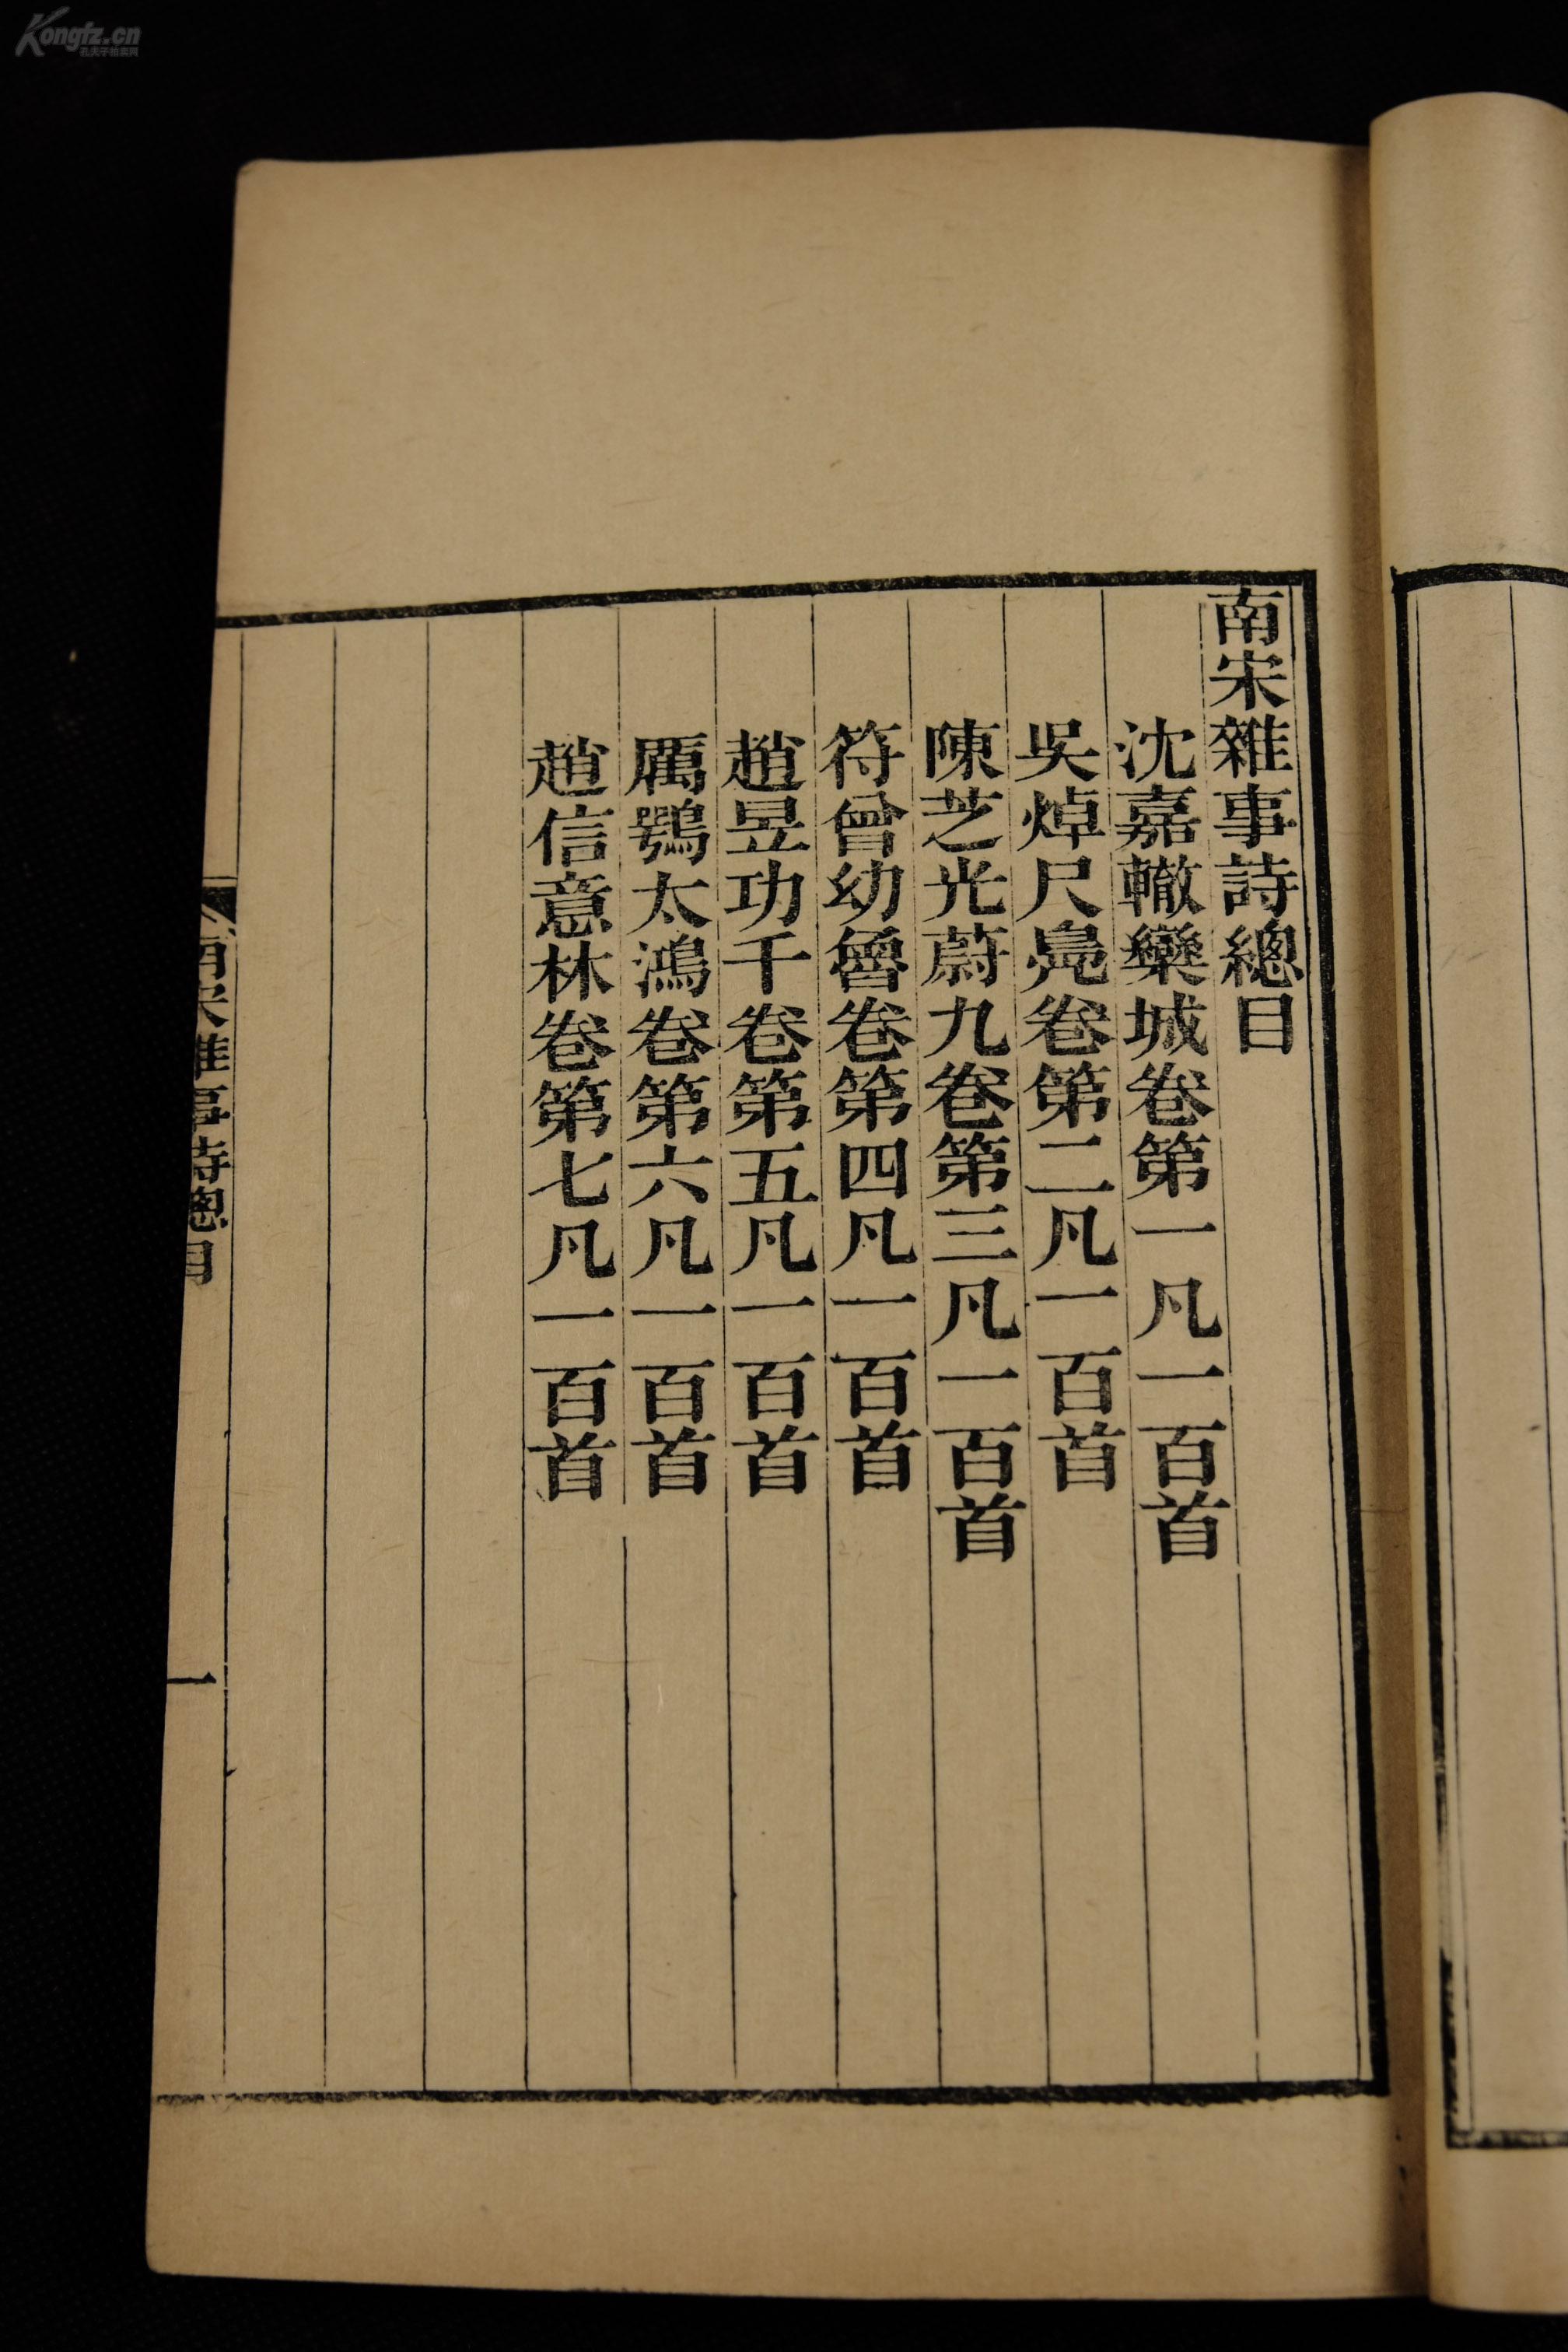 南宋雜事詩總目
沈嘉轍欒城卷第一凡一百首
吳焯尺鳧卷第二凡一百首
陳芝光蔚九卷第三凡一百首
符曾幼魯卷第四凡一百首
趙昱功千卷第五凡一百首
厲鶚太鴻卷第六凡一百首
趙信意林卷第七凡一百首
南宋雜事詩總目
一
Kongfz.cn
孔夫子拍卖网